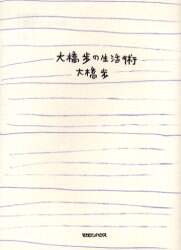 大橋歩の生活術
大橋歩
マガジンハウス